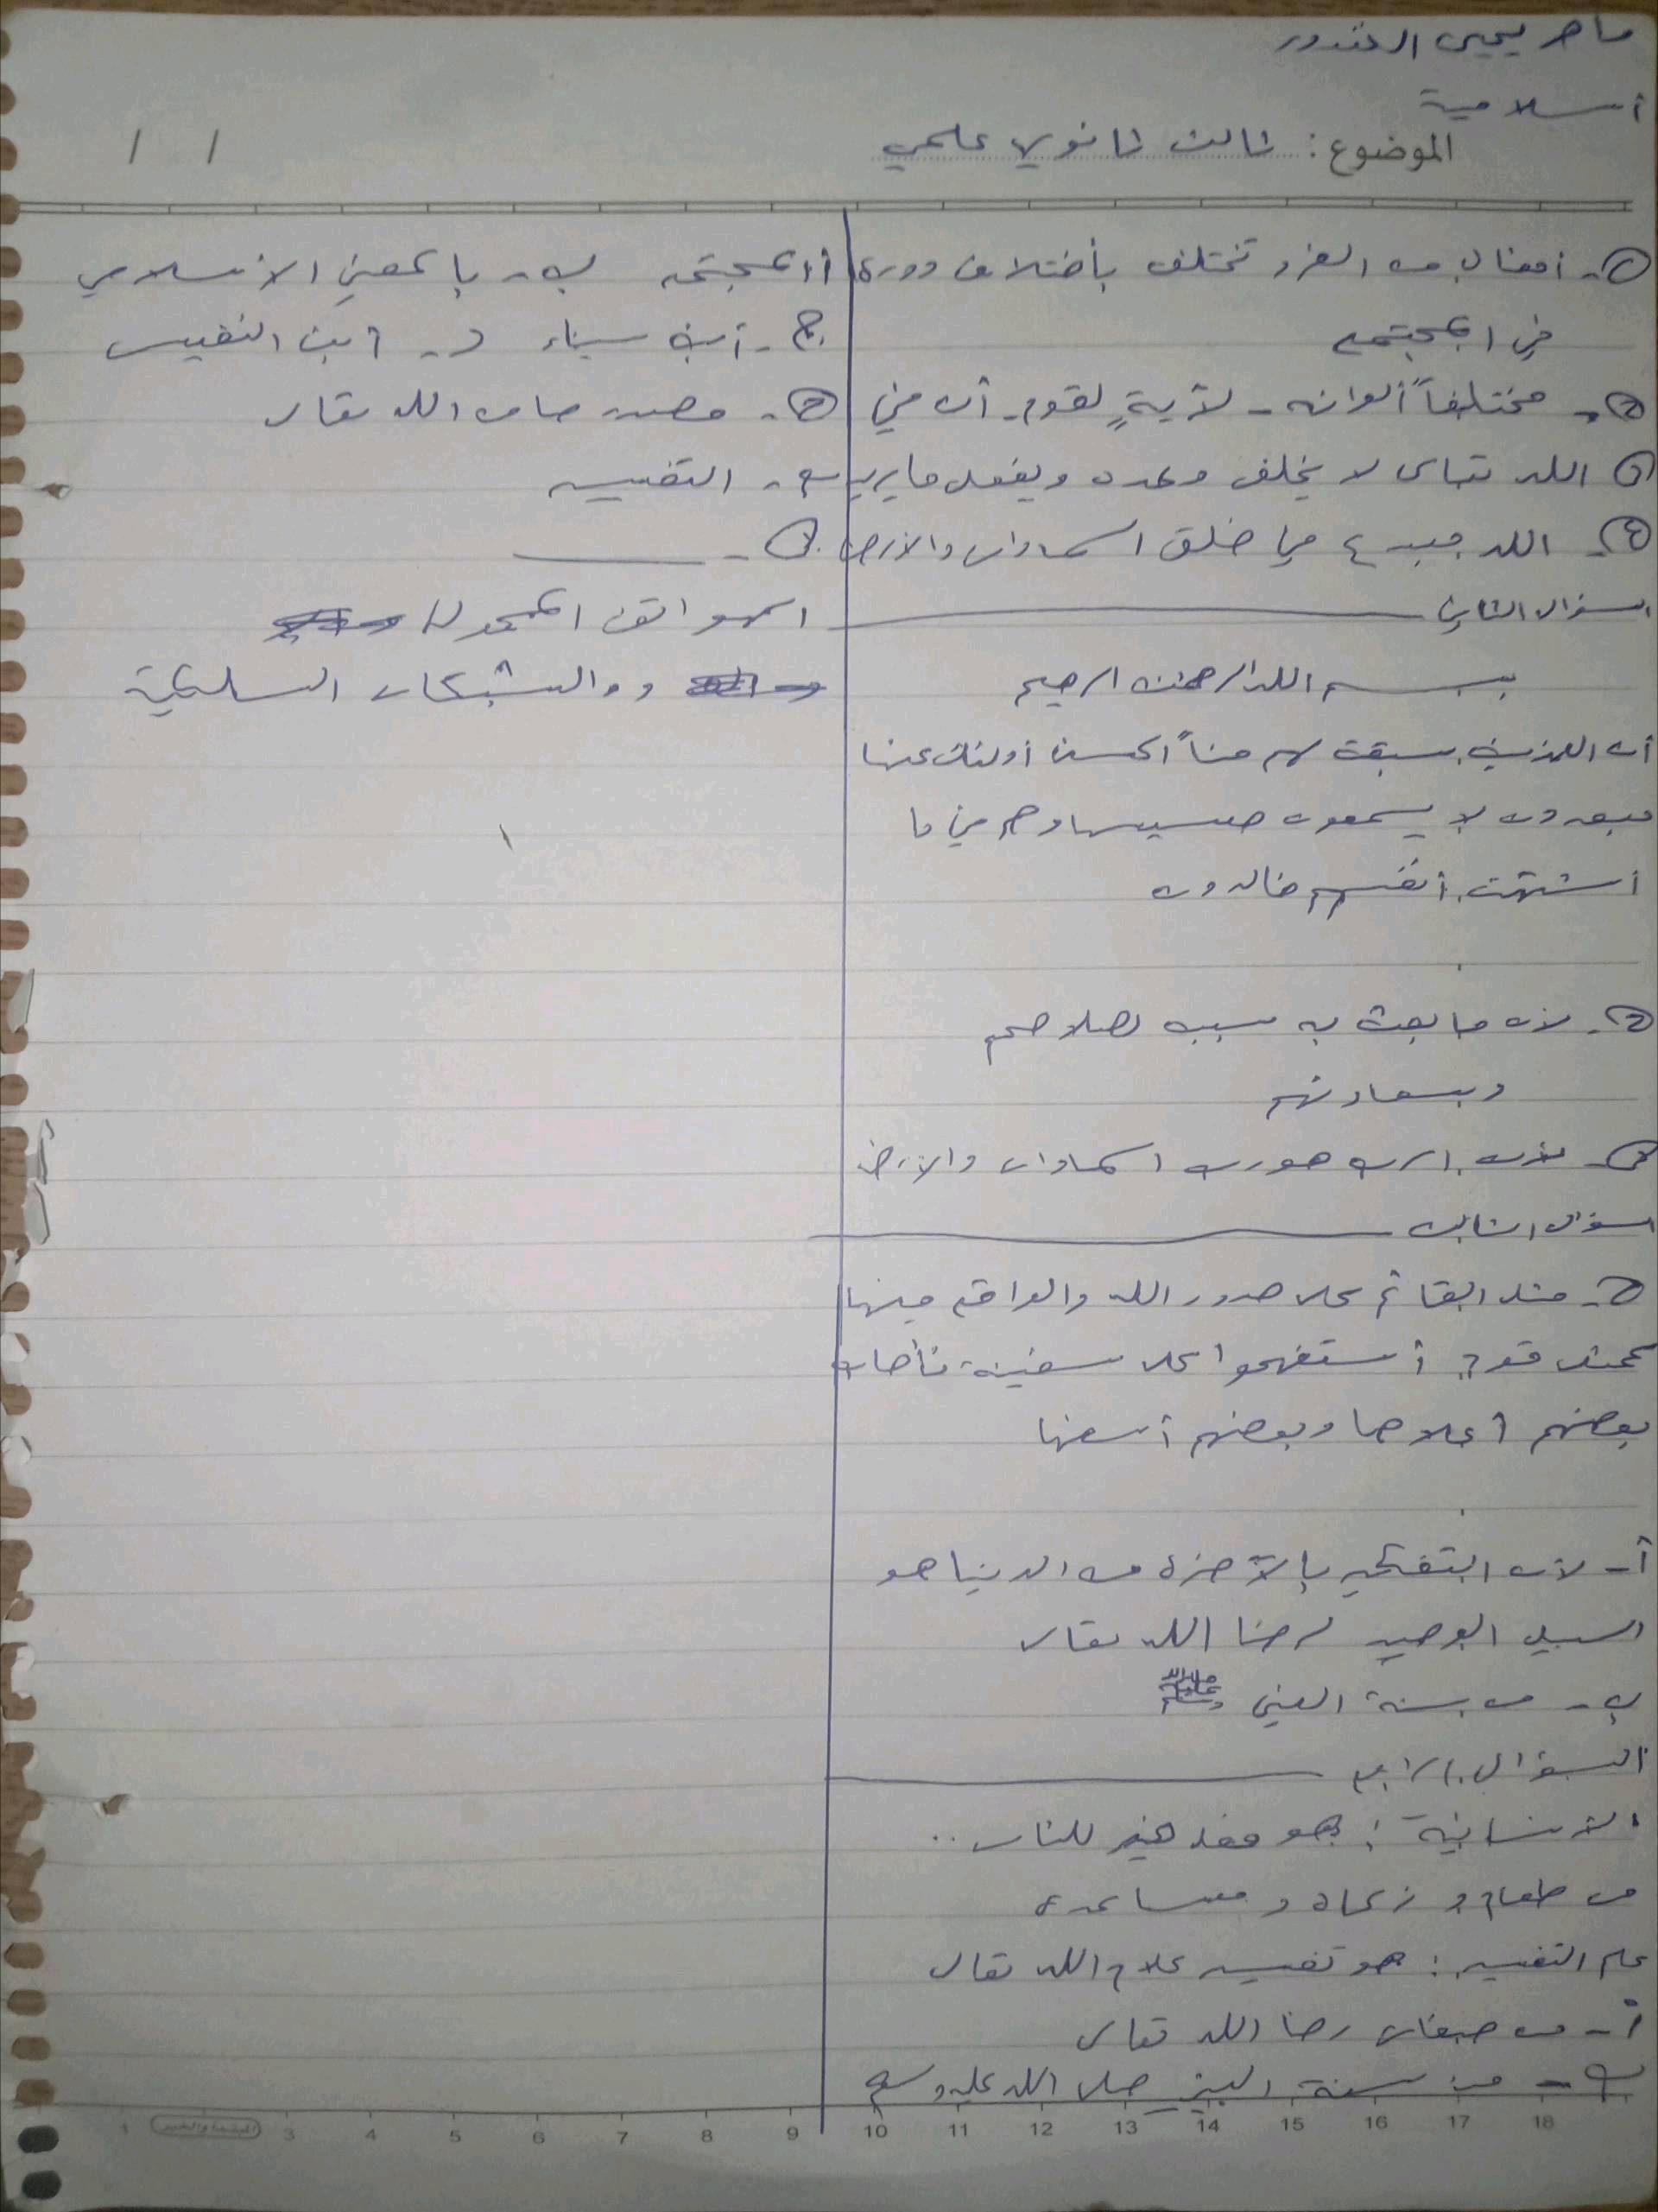 ماهر يحيى الغندور
أسلامية
الموضوع: ثالث ثانوي علمي
/ /
١- أفعال من الفرد تختلف بأختلاف دوره
في المجتمع
٢- مختلفاً ألوانه - لآيةٍ لقوم - أن في
٣ الله تعالى لا يخلف وعده ويفعل ما يريد
٤- الله مبدع في خلق السماوات والأرض
السؤال الثاني
بسم الله الرحمن الرحيم
أن اللذين سبقت لهم مناً الحسنى أولئك عنها
مبعدون لا يسمعون حسيسها وهم في ما
أشتهت أنفسهم خالدون
٢- لأن ما بعث به سبب لصلاحهم
وبسعادتهم
٣- لأن الرب هو رب السماوات والأرض
السؤال الثالث
٢- مثل القائم علا حدود الله والواقع فيها
كمثل قوم أستهموا علا سفينة فأصاب
بعضهم أعلاها وبعضهم أسفلها
أ- لأن التفكير بالآخرة من الدنيا هو
السبيل الوحيد لرضا الله تعالى
ب- من سنة النبي ﷺ
السؤال الرابع
الأنسانية: هو فعل خير للناس..
من طعام و زكاة و مساعدة
علم التفسير: هو تفسير كلام الله تعالى
أ- من صفات رضا الله تعالى
ب- من سنة النبي صلا الله عليه وسلم
أ المجتمع ب- بالمعنى الأنسلامي
ج- أبن سيناء د- أبن النفيس
٢- مصدرها من الله تعالى
م- التفسير
٣-
الهواتف المحمولة
و والشبكات السلكية
3 4 5 6 7 8 9 10 11 12 13 14 15 16 17 18